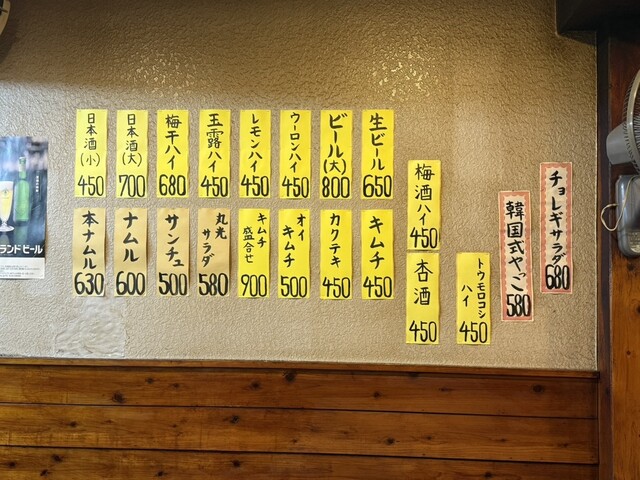 チョレギサラダ 680
韓国式やっこ 580
生ビール 650
ビール(大) 800
ウーロンハイ 450
レモンハイ 450
玉露ハイ 450
梅干ハイ 680
日本酒(大) 700
日本酒(小) 450
梅酒ハイ 450
キムチ 450
カクテキ 450
オイキムチ 500
キムチ盛合せ 900
丸光サラダ 580
サンチュ 500
ナムル 600
本ナムル 630
杏酒 450
トウモロコシハイ 450
ランドビール